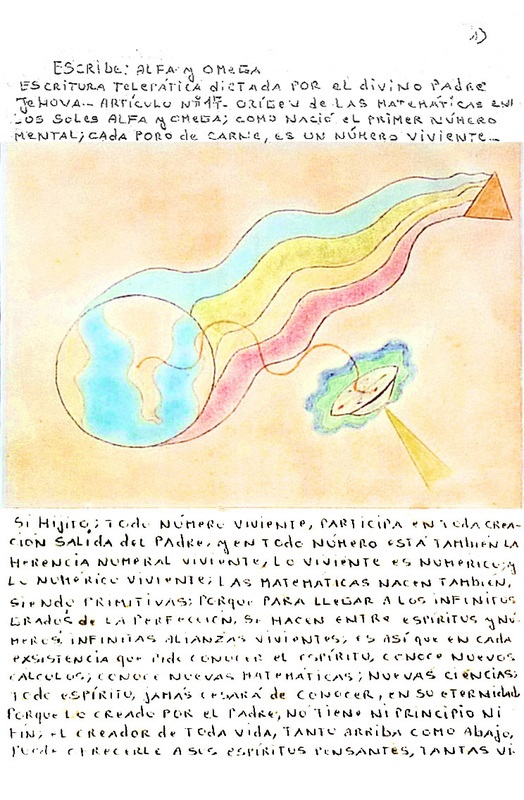 ESCRIBE: ALFA y OMEGA
ESCRITURA TELEPÁTICA dictada POR el divino Padre
JeHOVA.- ARTÍCULO Nº17- ORÍGEN de LAS MATEMÁTICAS EN
LOS SOLES ALFA y OMEGA; COMO NACIÓ EL PRIMER NÚMERO
MENTAL; CADA PORO de CARNE, ES UN NÚMERO VIVIENTE.-
Sí Hijito; Todo NÚMERO VIVIENTE, PARTICIPA en Toda CREA-
CIÓN SALIDA del PADRE. y en Todo NÚMERO ESTÁ TAMBIEN LA
HERENCIA NUMERAL VIVIENTE, LO VIVIENTE ES NUMÉRICO; y
LO NUMÉRICO VIVIENTE; LAS MATEMATICAS NACEN TAMBIEN,
Siendo PRIMITIVAS; PORQUE PARA LLEGAR A LOS INFINITOS
GRADOS de LA PERFECCIÓN, SE HACEN ENTRE ESPÍRITUS y NÚ-
MEROS, INFINITAS ALIANZAS VIVIENTES; ES ASÍ QUE EN CADA
EXSISTENCIA que Pide CONOCER el ESPÍRITU, CONOCE NUEVOS
CÁLCULOS; CONOCE NUEVAS MATEMÁTICAS; NUEVAS CIENCIAS;
Todo ESPÍRITU, JAMÁS CESARÁ de CONOCER, EN SU ETERNIDAD
PORQUE LO CREADO POR EL PADRE, NO TIENE NI PRINCIPIO NI
FIN; EL CREADOR de TODA VIDA, TANTO ARRIBA COMO ABAJO,
PUEDE OFRECERLE A SUS ESPÍRITUS PENSANTES, TANTAS VI-